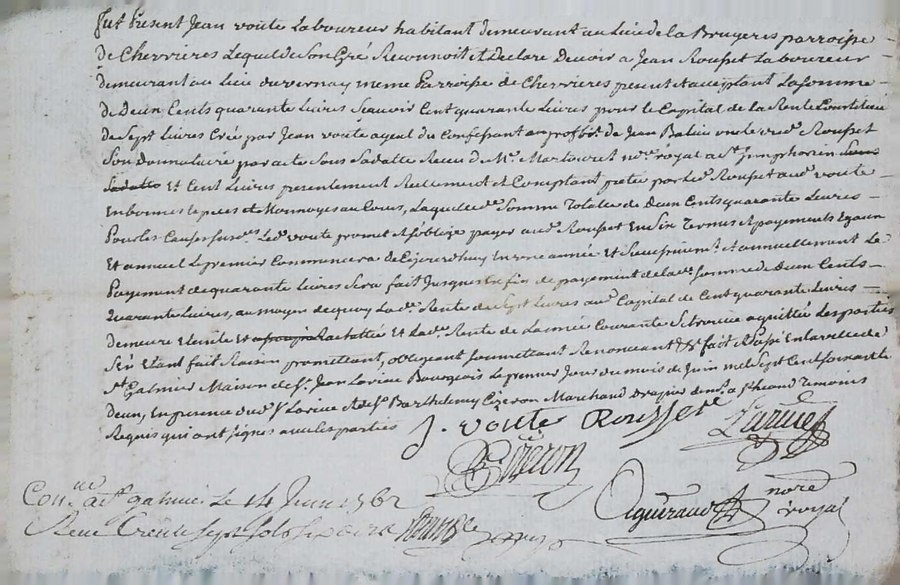 fut Present Jean voute Laboureur habitant demeurant au Lieu de la Bruyeres parroisse
de Chevrieres Lequel de Son Gré Reconnoit et Declare Devoir a Jean Rousset Laboureur
demeurant au Lieu du vernay meme Parroisse de Chevrieres present et acceptant La Somme
de Deux Cents quarante Livres Scavoir Cent quarante Livres pour le Capital de la Rente Constituée
de Sept Livres Créé par Jean voute ayeul du Confessant au proffit de Jean Rousset
Son Donnataire par acte Sous Sa datte Receu de Me. Not.re royal a St. Simphorien Sous
Sadatte Et Cent Livres presentement Reellement et Comptant pretée par led. Rousset aud. voute
En bonnes Especes et Monnoyes au Cours, Laquelle de. Somme Totalle de Deux Cents quarante Livres
Pour les Causes susd.es Led. voute promet et s'oblige payer aud. Rousset En Six Termes et payements Egaux
Et annuel Le premier Commencera de Cejourdhuy En une année et annuellement Le
Payement de quarante Livres Sera fait Jusques En fin de payement de lade. Somme de Deux Cents
Quarante Livres, au moyen de quoy Lade. Rente de Sept Livres aud. Capital de Cent quarante Livres
demeure Eteinte et Rachattée et Lade. Rente de Lannée Courante Se trouve aquittée Les parties
fait Raison promettant, obligeant soumettant Renonceant &c fait et Passé En la ville de
St. Galmier Maison de Sr. Jean Larive Bourgeois Le premier Jour du mois de Juin Mil Sept Cent soixante
Deux, En presence dud. Sr Larive et de Sr. Barthelemy Cizeron Marchand Drapier de a Temoins
Requis qui ont signes avec les parties J. voute Rousset Larive
Cizeron
Con.le a St galmier Le 14 Juin 1762
Aguiraud not.re
Receu Trente Sept Sols Six royal